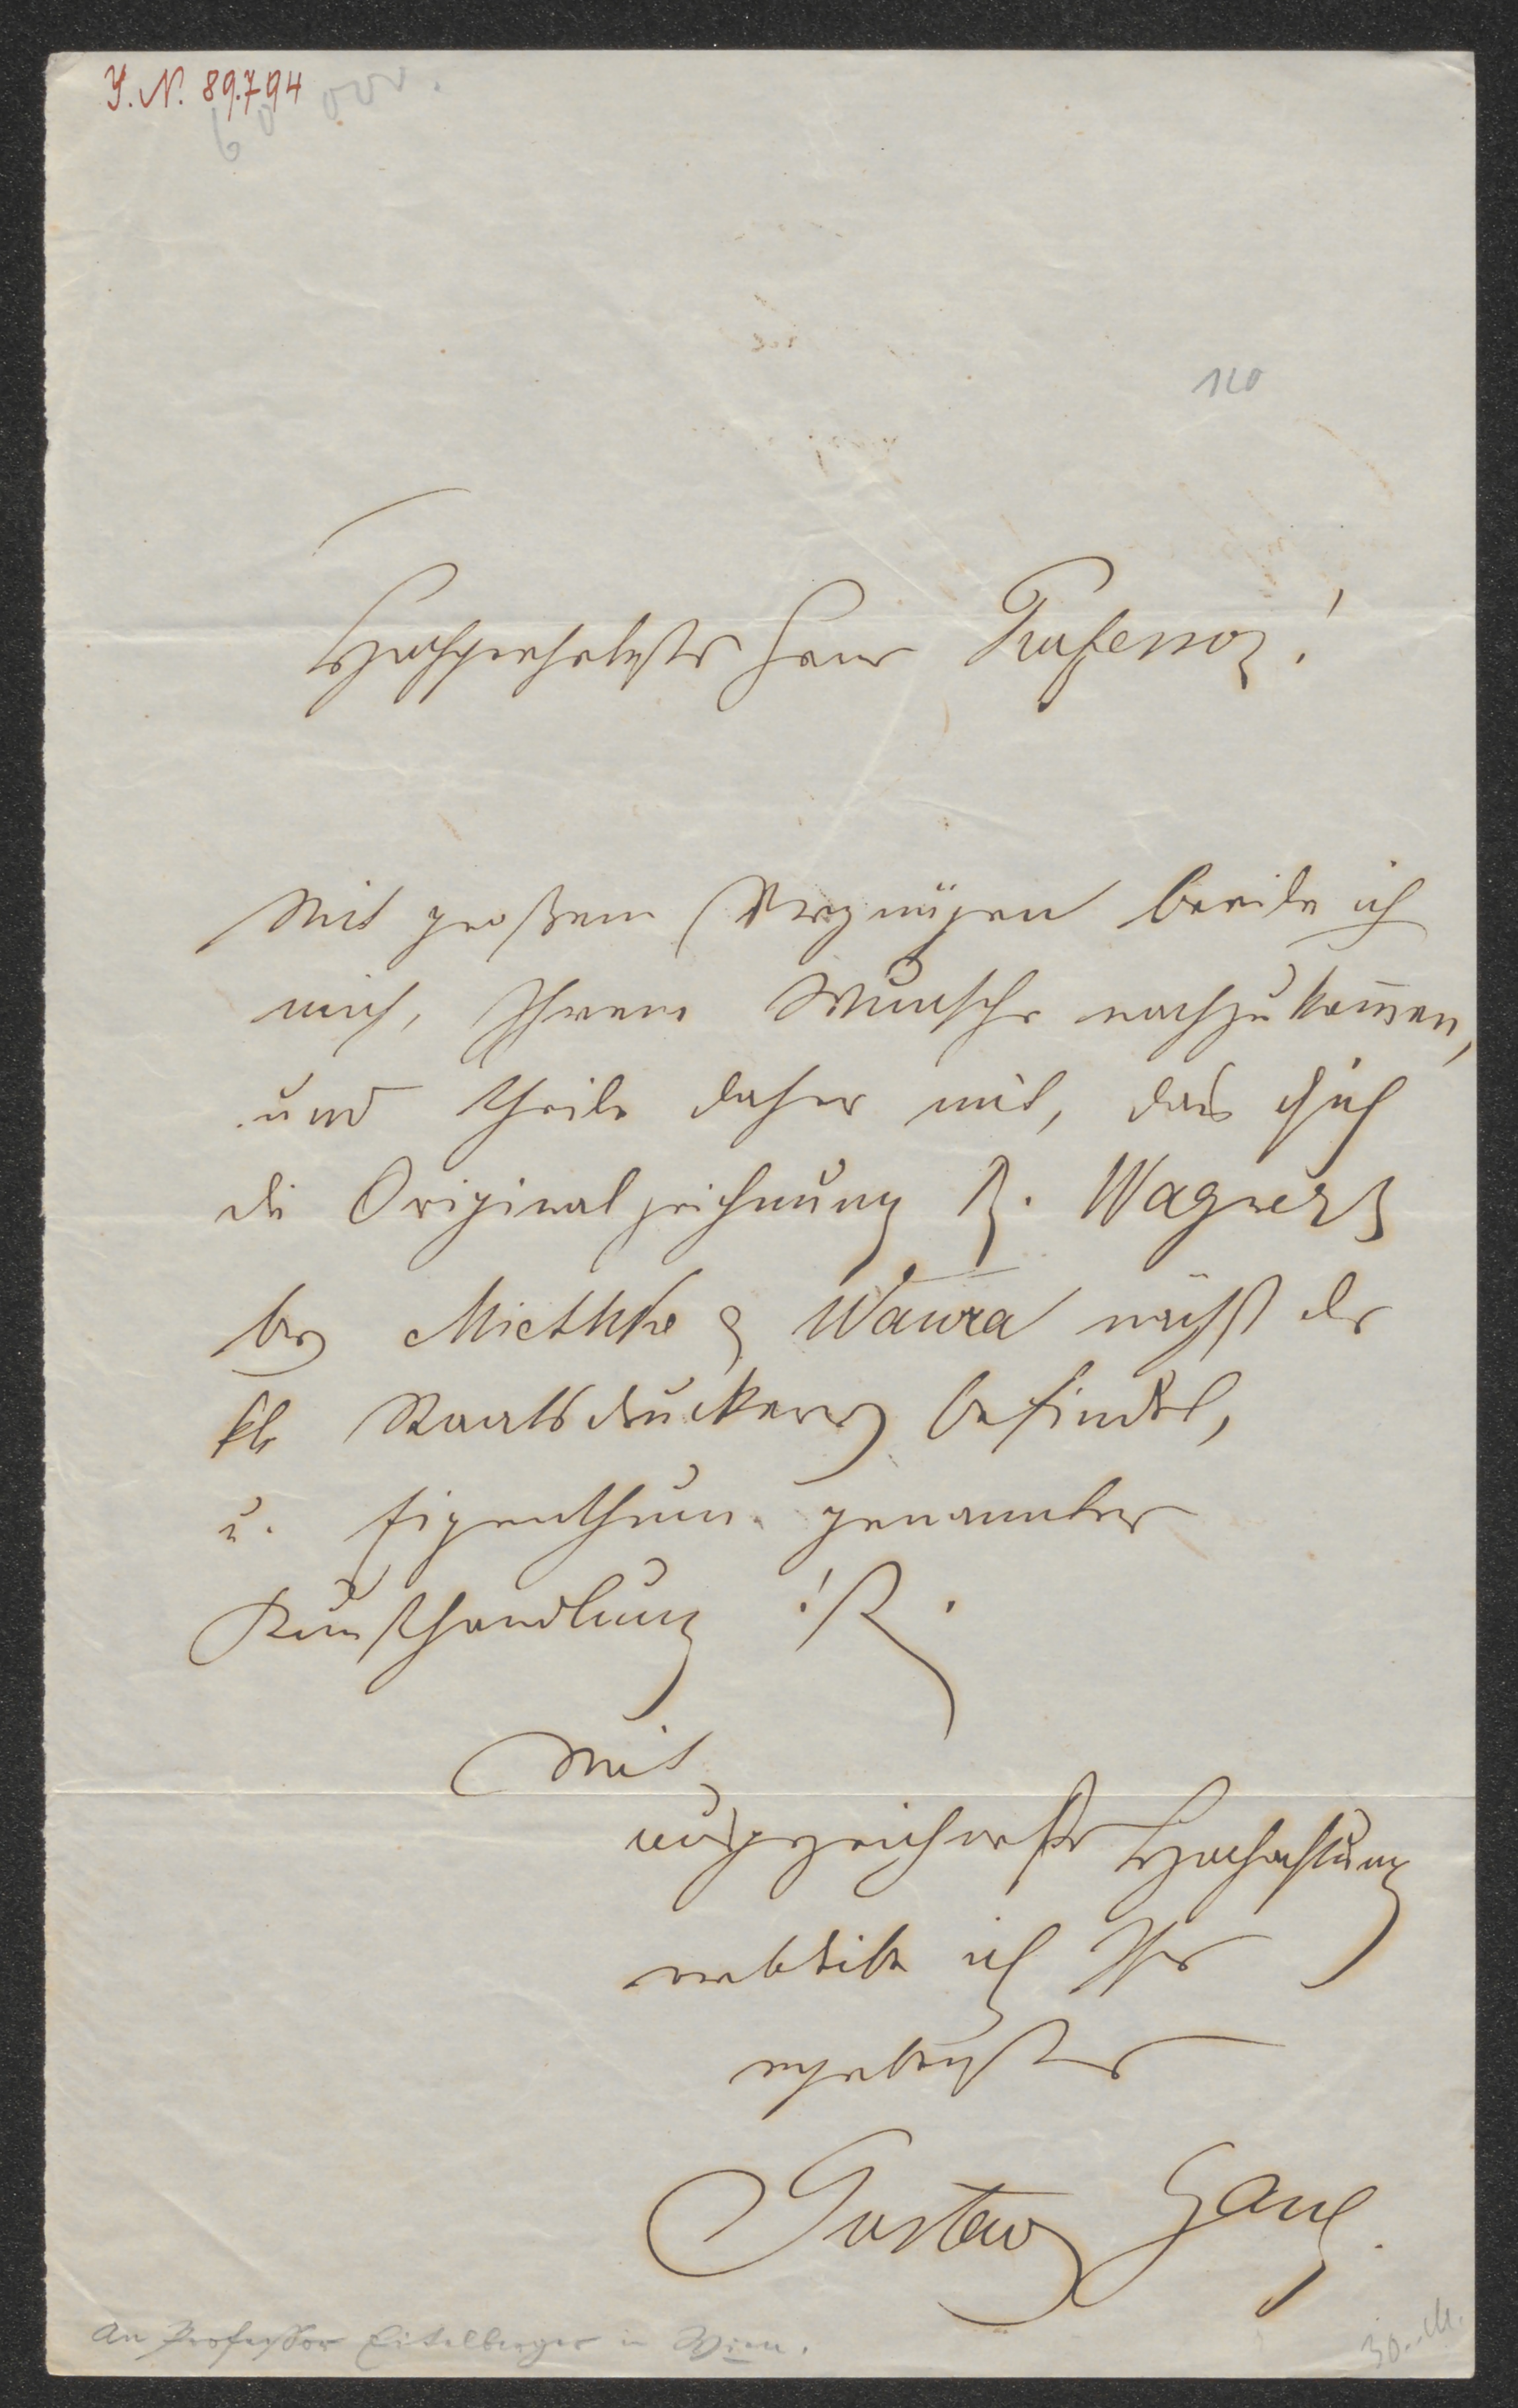 I. N. 89.794
120
Hochgeehrtester Herr Professor!
Mit großem Vergnügen beeile ich
mich, Ihrem Wunsche nachzukom̄en,
und theile daher mit, das sich
die Originalzeichnung R. Wagners
bey Miethke & Wawra nächst der
kk Staatsdruckerey befindet,
u. Eigenthum genannter
Kunsthandlung ist.
Mit
ausgezeichneter Hochachtung
verbleibe ich Ihr
ergebenster
Gustav Gaul.
An Professor Eitelberger in Wien.
30.- M.